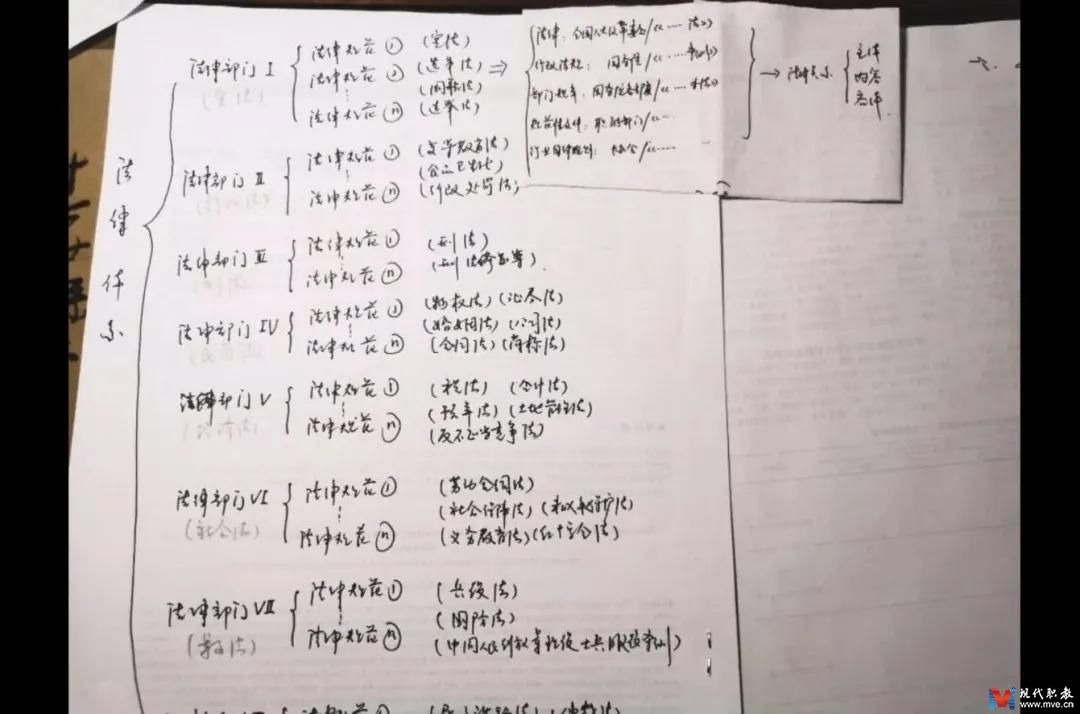 法律体系
法律部门 I
(宪法)
法律规范 ① (宪法)
法律规范 ② (选举法) ⇒
(国籍法)
法律规范 ⓝ (选举法)
法律: 全国人大及常委会/《…… 法》
行政法规: 国务院/《……条例》
部门规章: 国务院各部委/《……办法》
规范性文件: 职能部门/《…
行业自律规则: 协会/《……
→ 法律关系
主体
内容
客体
法律部门 II
(行政法)
法律规范 ① (高等教育法)
(食品卫生法)
法律规范 ⓝ (行政处罚法)
法律部门 III
(刑法)
法律规范 ① (刑法)
法律规范 ⓝ (刑法修正案)
法律部门 IV
法律规范 ① (物权法) (证券法)
(婚姻法) (公司法)
法律规范 ⓝ (合同法) (商标法)
法律部门 V
(经济法)
法律规范 ① (税法) (会计法)
(预算法) (土地管理法)
法律规范 ⓝ (反不正当竞争法)
法律部门 VI
(社会法)
法律规范 ① (劳动合同法)
(社会保障法)
法律规范 ⓝ (义务教育法) (红十字会法)
法律部门 VII
法律规范 ① (兵役法)
(国防法)
法律规范 ⓝ (中国人民解放军现役士兵服役条例)
现代职教
www.mve.cn